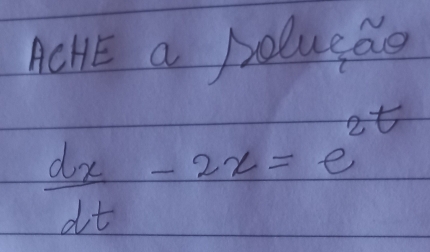 ACHE a solução
dx/dt - 2x = e^2t